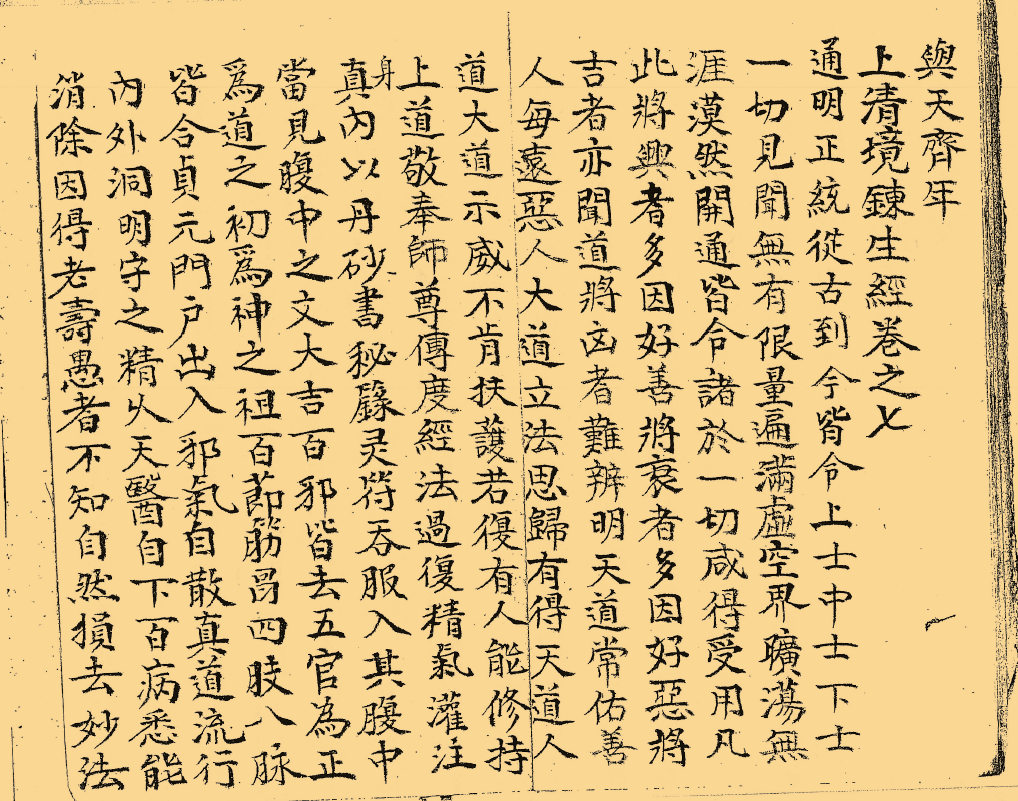 與天齊年
上清境鍊生經卷之七
通明正統從古到今皆令上士中士下士
一切見聞無有限量遍滿虛空界曠蕩無
涯漠然開通皆令諸於一切咸得受用凡
此將興者多因好善將衰者多因好惡將
吉者亦聞道將凶者難辨明天道常佑善
人每遠惡人大道立法思歸有得天道人
道大道示威不肯扶護若復有人能修持
上道敬奉師尊傳度經法過復精氣灌注
身真內以丹砂書秘籙灵符吞服入其腹中
當見腹中之文大吉百邪皆去五官為正
爲道之初爲神之祖百節筋骨四肢八脉
皆合貞元門户出入邪氣自散真道流行
內外洞明守之精火天醫自下百病悉能
消除因得老壽愚者不知自然損去妙法